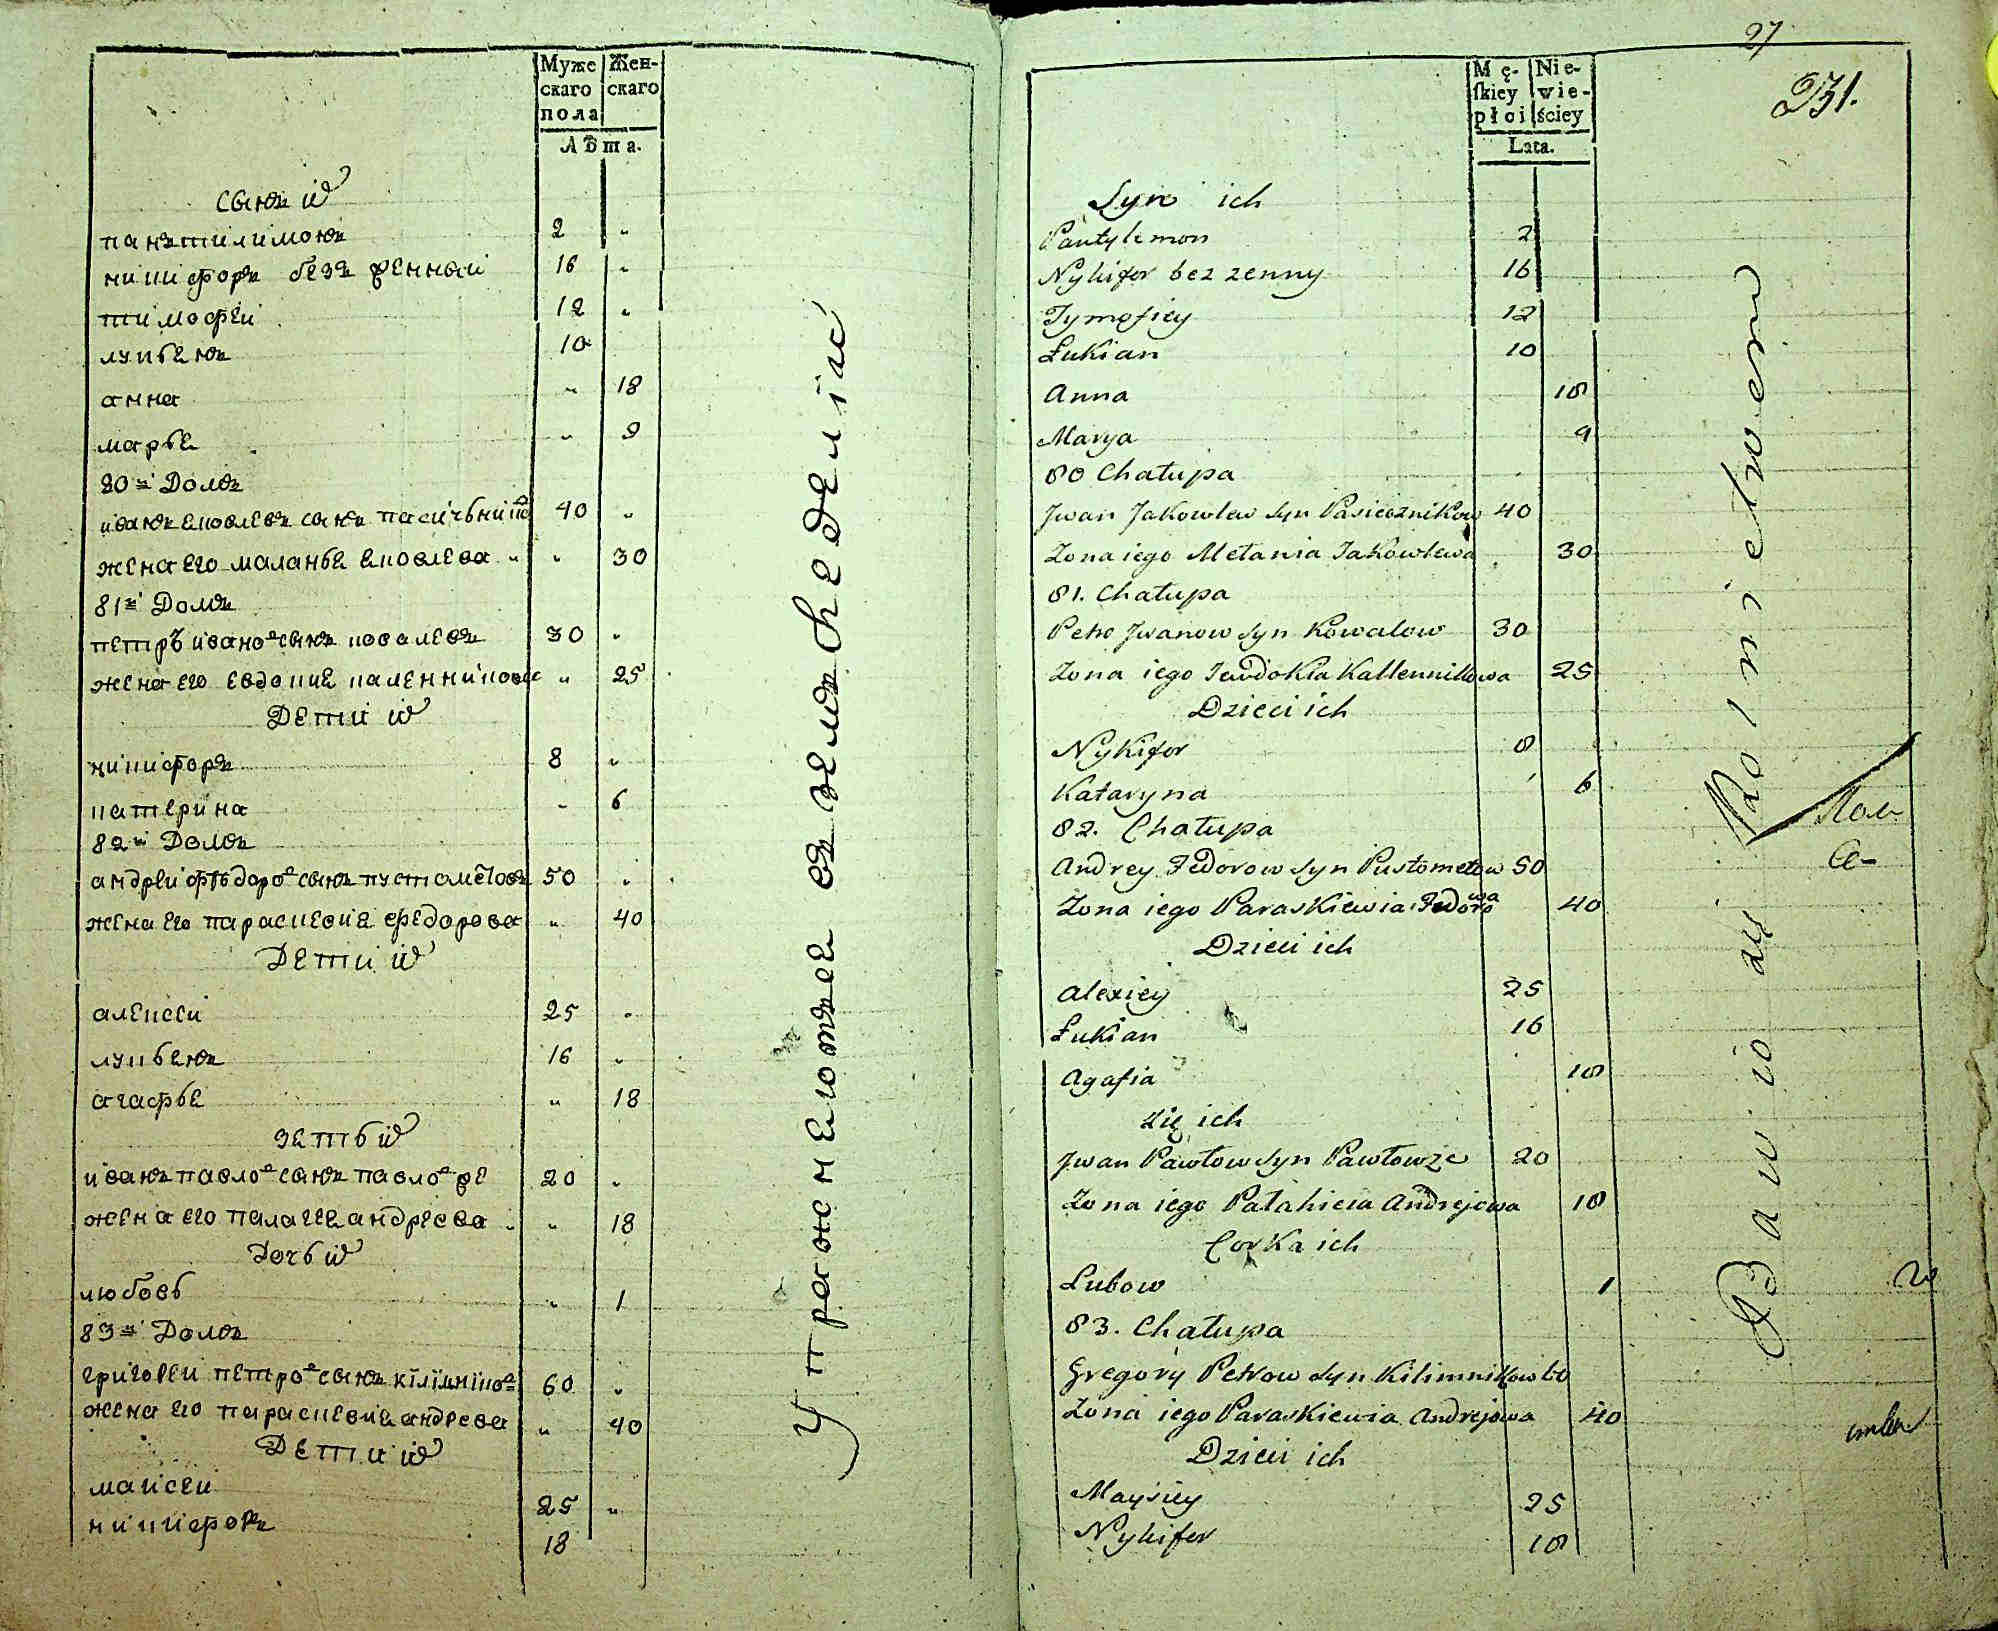 Муже
скаго
пола
Жен-
скаго
Лѣта.
сынъ их
панътилимонъ 2 "
никифоръ безъ женный 16 "
тимофеи 12 "
лукьянъ 10
анна " 18
марья " 9
80й Домъ
иванъ яковлевъ сынъ пасичьникo 40 "
жена его маланья яковлева " " 30
81й Домъ
петръ ивановсынъ ковалевъ 30 "
жена его евдокия каленникова " 25
Дети их
никифоръ 8 "
катерина " 6
82й Домъ
андреи фѣдоровсынъ пустаметовъ 50 "
жена его параскевия федорова " 40
Дети их
алексеи 25 "
лукьянъ 16 "
агафья " 18
зеть их
иванъ павловсынъ павловже 20 "
жена его палагея андреева " " 18
Дочь их
любовь " 1
83й Домъ
григореи петровсынъ кілімніков 60 "
жена его параскевия андреева " 40
Дети их
маисеи 25 "
никифоръ 18
Упражнеютъся въ земъ леделіас
27
231.
Mę-
ſkiey
płci
Nie-
wie-
ściey
Lata.
Syn ich
Pantylimon 2
Nykifor bez zenny 16
Tymofiey 12
Łukian 10
Anna 18
Marya 9
80 Chałupa
Jwan Jakowlew syn Pasiecznikow 40
Zona iego Mełania Jakowlewa 30
81. Chałupa
Petro Jwanow syn Kowalow 30
Zona iego Jewdokia Kallennikowa 25
Dzieci ich
Nykifor 8
Kataryna 6
82. Chałupa
Andrey Fedorow syn Pustometow 50
Zona iego Paraskiewia Fedorowa 40
Dzieci ich
Alexiey 25
Łukian 16
Agafia 18
Zię ich
Jwan Pawłow syn Pawłowże 20
Zona iego Pałahieia Andrejewa 18
Corka ich
Lubow 1
83. Chałupa
Gregory Petrow syn Kilimnikow 60
Zona iego Paraskiewia Andrejowa 40
Dzieci ich
Maysiey 25
Nykifor 18
Bawio się Rolnictwem